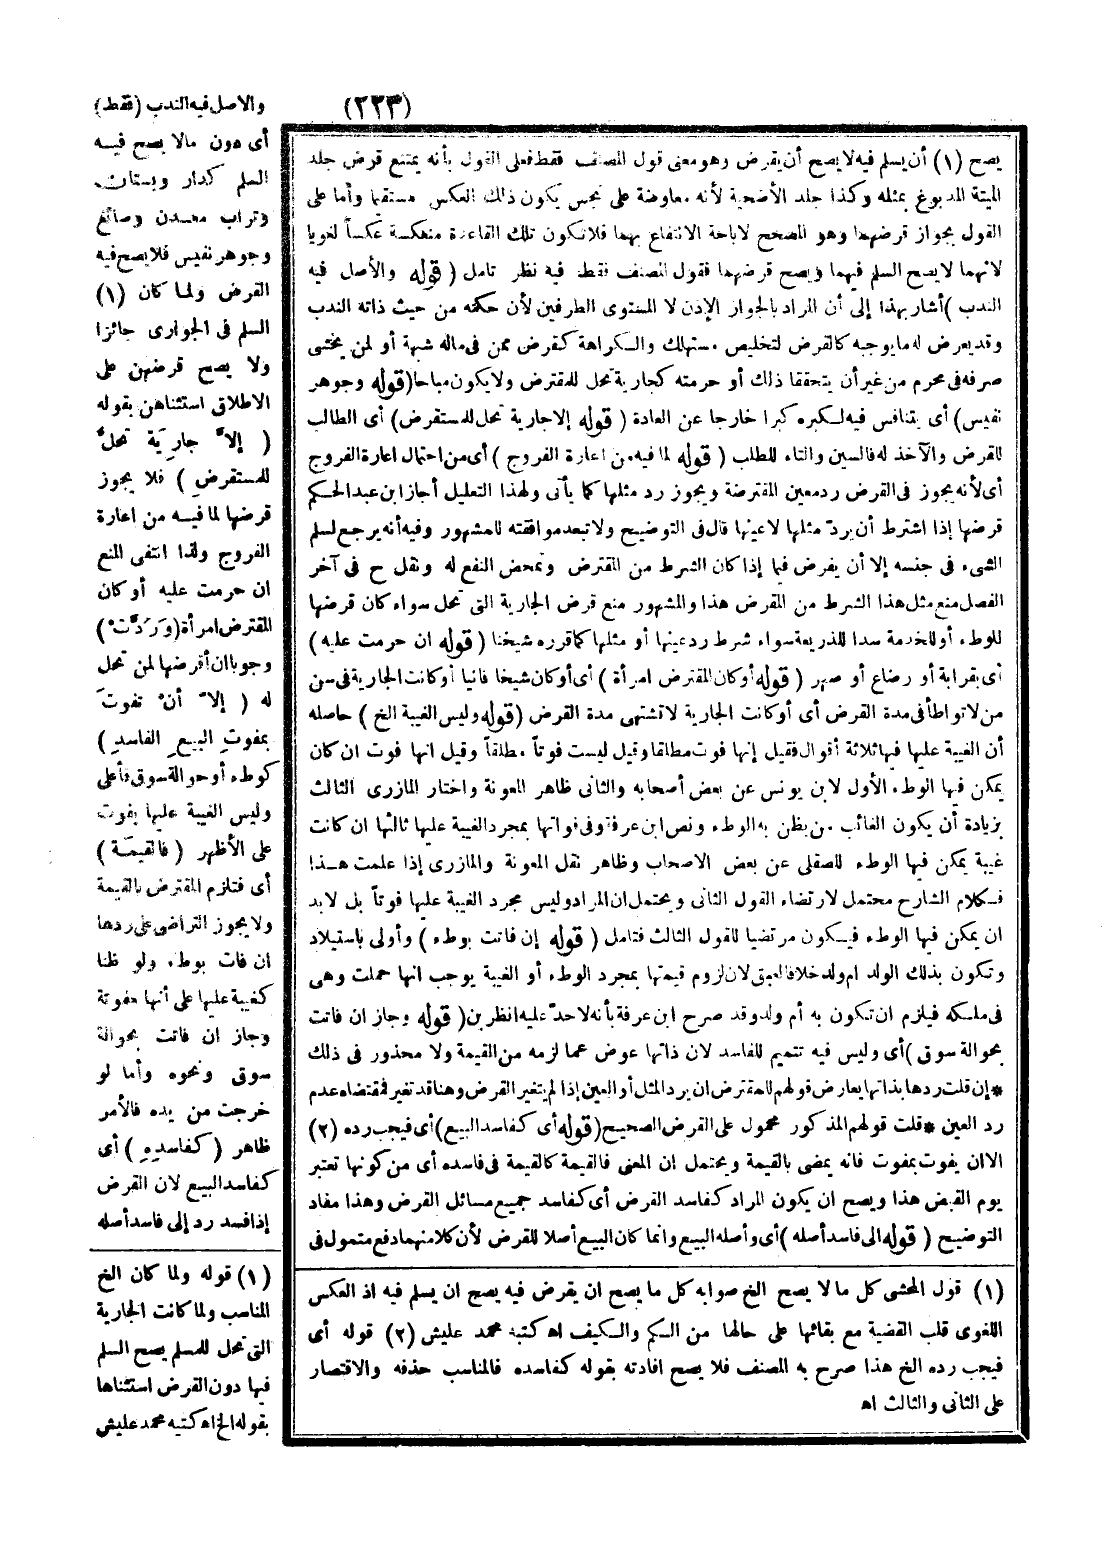 (٢٢٣)
يصح (١) أن يسلم فيه لا يصح أن يقرض وهو معنى قول المصنف فقط فعلى القول بأنه يمتنع قرض جلد
الميتة المدبوغ بمثله وكذا جلد الأضحية لأنه معاوضة على نجس يكون ذلك العكس مستقيما وأما على
القول بجواز قرضهما وهو المصحح لاباحة الانتفاع بهما فلا تكون تلك القاعدة منعكسة عكساً لغويا
لانهما لا يصح السلم فيهما ويصح قرضهما فقول المصنف فقط فيه نظر تامل (قوله والأصل فيه
الندب) أشار بهذا إلى أن المراد بالجواز الإذن لا المستوى الطرفين لأن حكمه من حيث ذاته الندب
وقد يعرض له ما يوجبه كالقرض لتخليص مستهلك والكراهة كقرض ممن في ماله شبهة أو لمن يخشى
صرفه في محرم من غير أن يتحققا ذلك أو حرمته كجارية تحل للمقترض ولا يكون مباحا (قوله وجوهر
نفيس) أى يتنافس فيه لكبره كبرا خارجا عن العادة (قوله إلا جارية تحل للمستقرض) أى الطالب
للقرض والآخذ له فالسين والتاء للطلب (قوله لما فيه من اعارة الفروج) أى من احتمال اعارة الفروج
أى لأنه يجوز فى القرض رد معين المقترضة ويجوز رد مثلها كما يأتى ولهذا التعليل أجاز ابن عبد الحكم
قرضها إذا اشترط أن يرد مثلها لا عينها قال فى التوضيح ولا تبعد موافقته للمشهور وفيه أنه يرجع لسلم
الشىء فى جنسه إلا أن يفرض فيما إذا كان الشرط من المقترض وتمحض النفع له ونقل ح فى آخر
الفصل منع مثل هذا الشرط من المقرض هذا والمشهور منع قرض الجارية التى تحل سواء كان قرضها
للوطء أو للخدمة سدا للذريعة سواء شرط رد عينها أو مثلها كما قرره شيخنا (قوله ان حرمت عليه)
أى بقرابة أو رضاع أو صهر (قوله أو كان المقترض امرأة) أى أو كان شيخا فانيا أو كانت الجارية فى سن
من لا توطأ فى مدة القرض أى أو كانت الجارية لا تشتهى مدة القرض (قوله وليس الغيبة الخ) حاصله
أن الغيبة عليها فيها ثلاثة أقوال فقيل إنها فوت مطلقا وقيل ليست فوتاً مطلقاً وقيل انها فوت ان كان
يمكن فيها الوطء الأول لابن يونس عن بعض أصحابه والثانى ظاهر المعونة واختار المازرى الثالث
بزيادة أن يكون الغائب من يظن به الوطء ونص ابن عرفة وفى فواتها بمجرد الغيبة عليها ثالثها ان كانت
غيبة يمكن فيها الوطء للصقلى عن بعض الاصحاب وظاهر نقل المعونة والمازرى إذا علمت هذا
فكلام الشارح محتمل لارتضاء القول الثانى ويحتمل ان المراد وليس مجرد الغيبة عليها فوتاً بل لا بد
ان يمكن فيها الوطء فيكون مرتضيا للقول الثالث فتامل (قوله إن فاتت بوطء) وأولى باستيلاد
وتكون بذلك الولد ام ولد خلافا لعبق لان لزوم قيمتها بمجرد الوطء أو الغيبة يوجب انها حملت وهى
فى ملكه فيلزم ان تكون به أم ولد وقد صرح ابن عرفة بأنه لا حد عليه انظر بن (قوله وجاز ان فاتت
بحوالة سوق) أى وليس فيه تتميم للفاسد لان ذاتها عوض عما لزمه من القيمة ولا محذور فى ذلك
* إن قلت ردها بذاتها يعارض قولهم للمقترض ان يرد المثل أو العين إذا لم يتغير القرض وهنا قد تغير فمقتضاه عدم
رد العين * قلت قولهم المذكور محمول على القرض الصحيح (قوله أى كفاسد البيع) أى فيجب رده (٢)
الا ان يفوت بمفوت فانه يمضى بالقيمة ويحتمل ان المعنى فالقيمة كالقيمة فى فاسده أى من كونها تعتبر
يوم القبض هذا ويصح ان يكون المراد كفاسد القرض أى كفاسد جميع مسائل القرض وهذا مفاد
التوضيح (قوله الى فاسد أصله) أى وأصله البيع وانما كان البيع أصلا للقرض لأن كلا منهما دفع متمول فى
(١) قول المحشى كل ما لا يصح الخ صوابه كل ما يصح ان يقرض فيه يصح ان يسلم فيه اذ العكس
اللغوى قلب القضية مع بقائها على حالها من الكم والكيف اه كتبه محمد عليش (٢) قوله أى
فيجب رده الخ هذا صرح به المصنف فلا يصح افادته بقوله كفاسده فالمناسب حذفه والاقتصار
على الثانى والثالث اه
والاصل فيه الندب (فقط)
أى دون مالا يصح فيه
السلم كدار وبستان
وتراب معدن وصائغ
وجوهر نفيس فلا يصح فيه
القرض ولما كان (١)
السلم فى الجوارى جائزا
ولا يصح قرضهن على
الاطلاق استثناهن بقوله
(إلاَّ جارِيَة تحلُّ
للمستقرضِ) فلا يجوز
قرضها لما فيه من اعارة
الفروج ولذا انتفى المنع
ان حرمت عليه أو كان
المقترض امرأة (وَرُدَّتْ)
وجوبا ان أقرضها لمن تحل
له (إلاَّ أنْ تفوتَ
بمفوتِ البيعِ الفاسدِ)
كوطء أو حوالة سوق فأعلى
وليس الغيبة عليها بفوت
على الأظهر (فالقيمَة)
أى فتلزم المقترض بالقيمة
ولا يجوز التراضى على ردها
ان فات بوطء ولو ظنا
كغيبة عليها على أنها مفوتة
وجاز ان فاتت بحوالة
سوق ونحوه وأما لو
خرجت من يده فالأمر
ظاهر (كفاسدِهِ) أى
كفاسد البيع لان القرض
إذا فسد رد إلى فاسد أصله
(١) قوله ولما كان الخ
المناسب ولما كانت الجارية
التى تحل للمسلم يصح السلم
فيها دون القرض استثناها
بقوله الخ اه كتبه محمد عليش